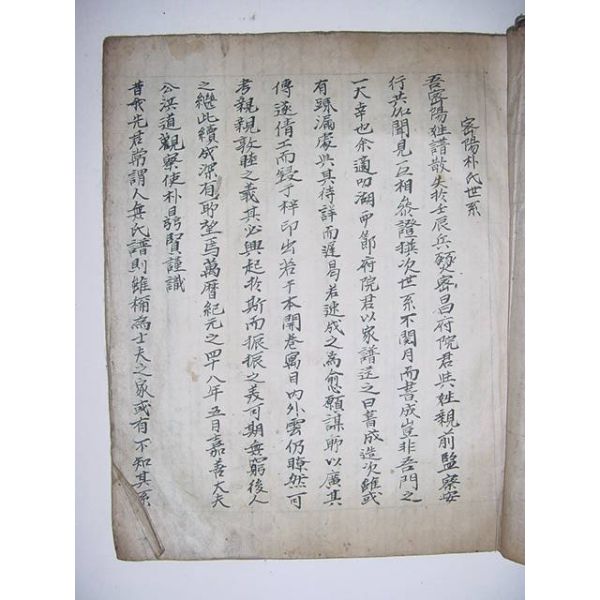 密陽朴氏世系
吾密陽姓譜散失於壬辰兵燹密昌府院君與姓親前監察安
行共加聞見互相叅證撰次世系不閱月而書成豈非吾門之
一大幸也余適叨湖兩鄭府院君以家譜送之曰書成造次雖或
有踈漏處與其待詳而遲曷若速成之爲愈願謀所以廣其
傳遂倩工而鋟于梓印出若干本開卷寓目內外雲仍瞭然可
考親親敦睦之義其必興起於斯而振振之美可期無窮後人
之繼此續成深有所望焉萬曆紀元之四十八年五月嘉善大夫
公洪道觀察使朴日弼賢謹識
昔我先君常謂人無氏譜則雖稱爲士夫之家或有不知其系